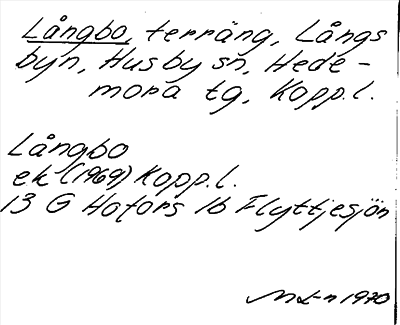 Långbo, terräng, Långs
byn, Husby sn, Hede-
mora tg, Kopp.l.
Långbo
ek (1969) Kopp.l.
13 G Hofors 1b Flyttjesjön
ML-n 1970